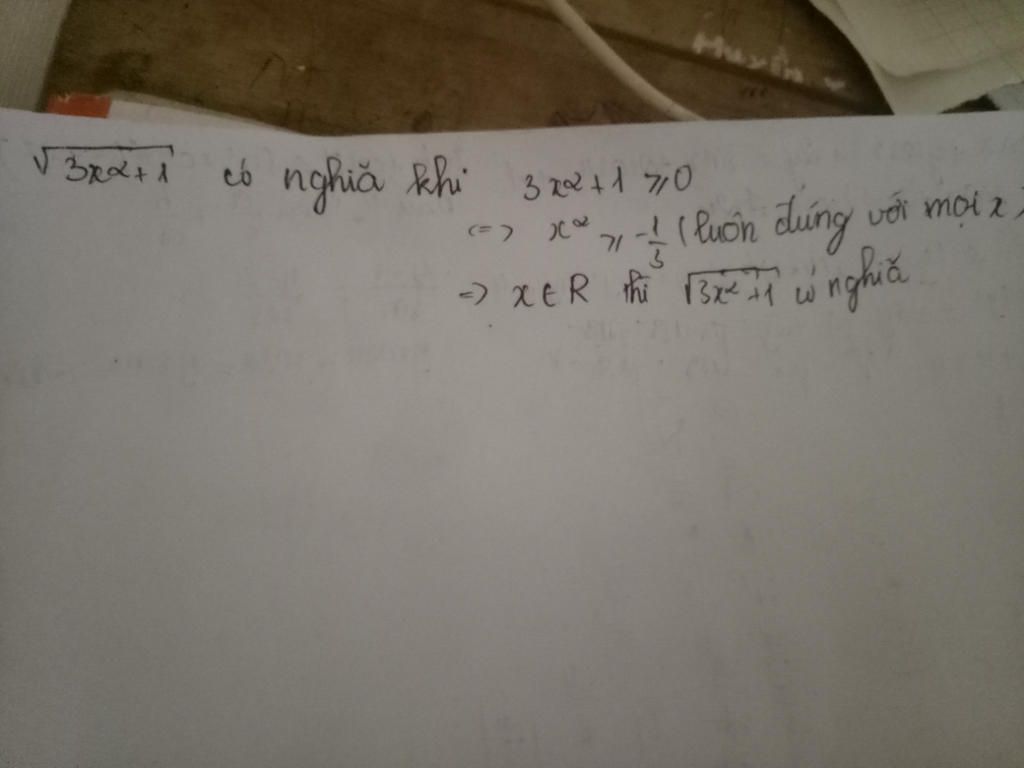 Huyền
√3x²+1 có nghĩa khi 3x²+1 ⩾ 0
<=> x² ⩾ -1/3 (luôn đúng với mọi x)
=> x ∈ R thì √3x²+1 có nghĩa